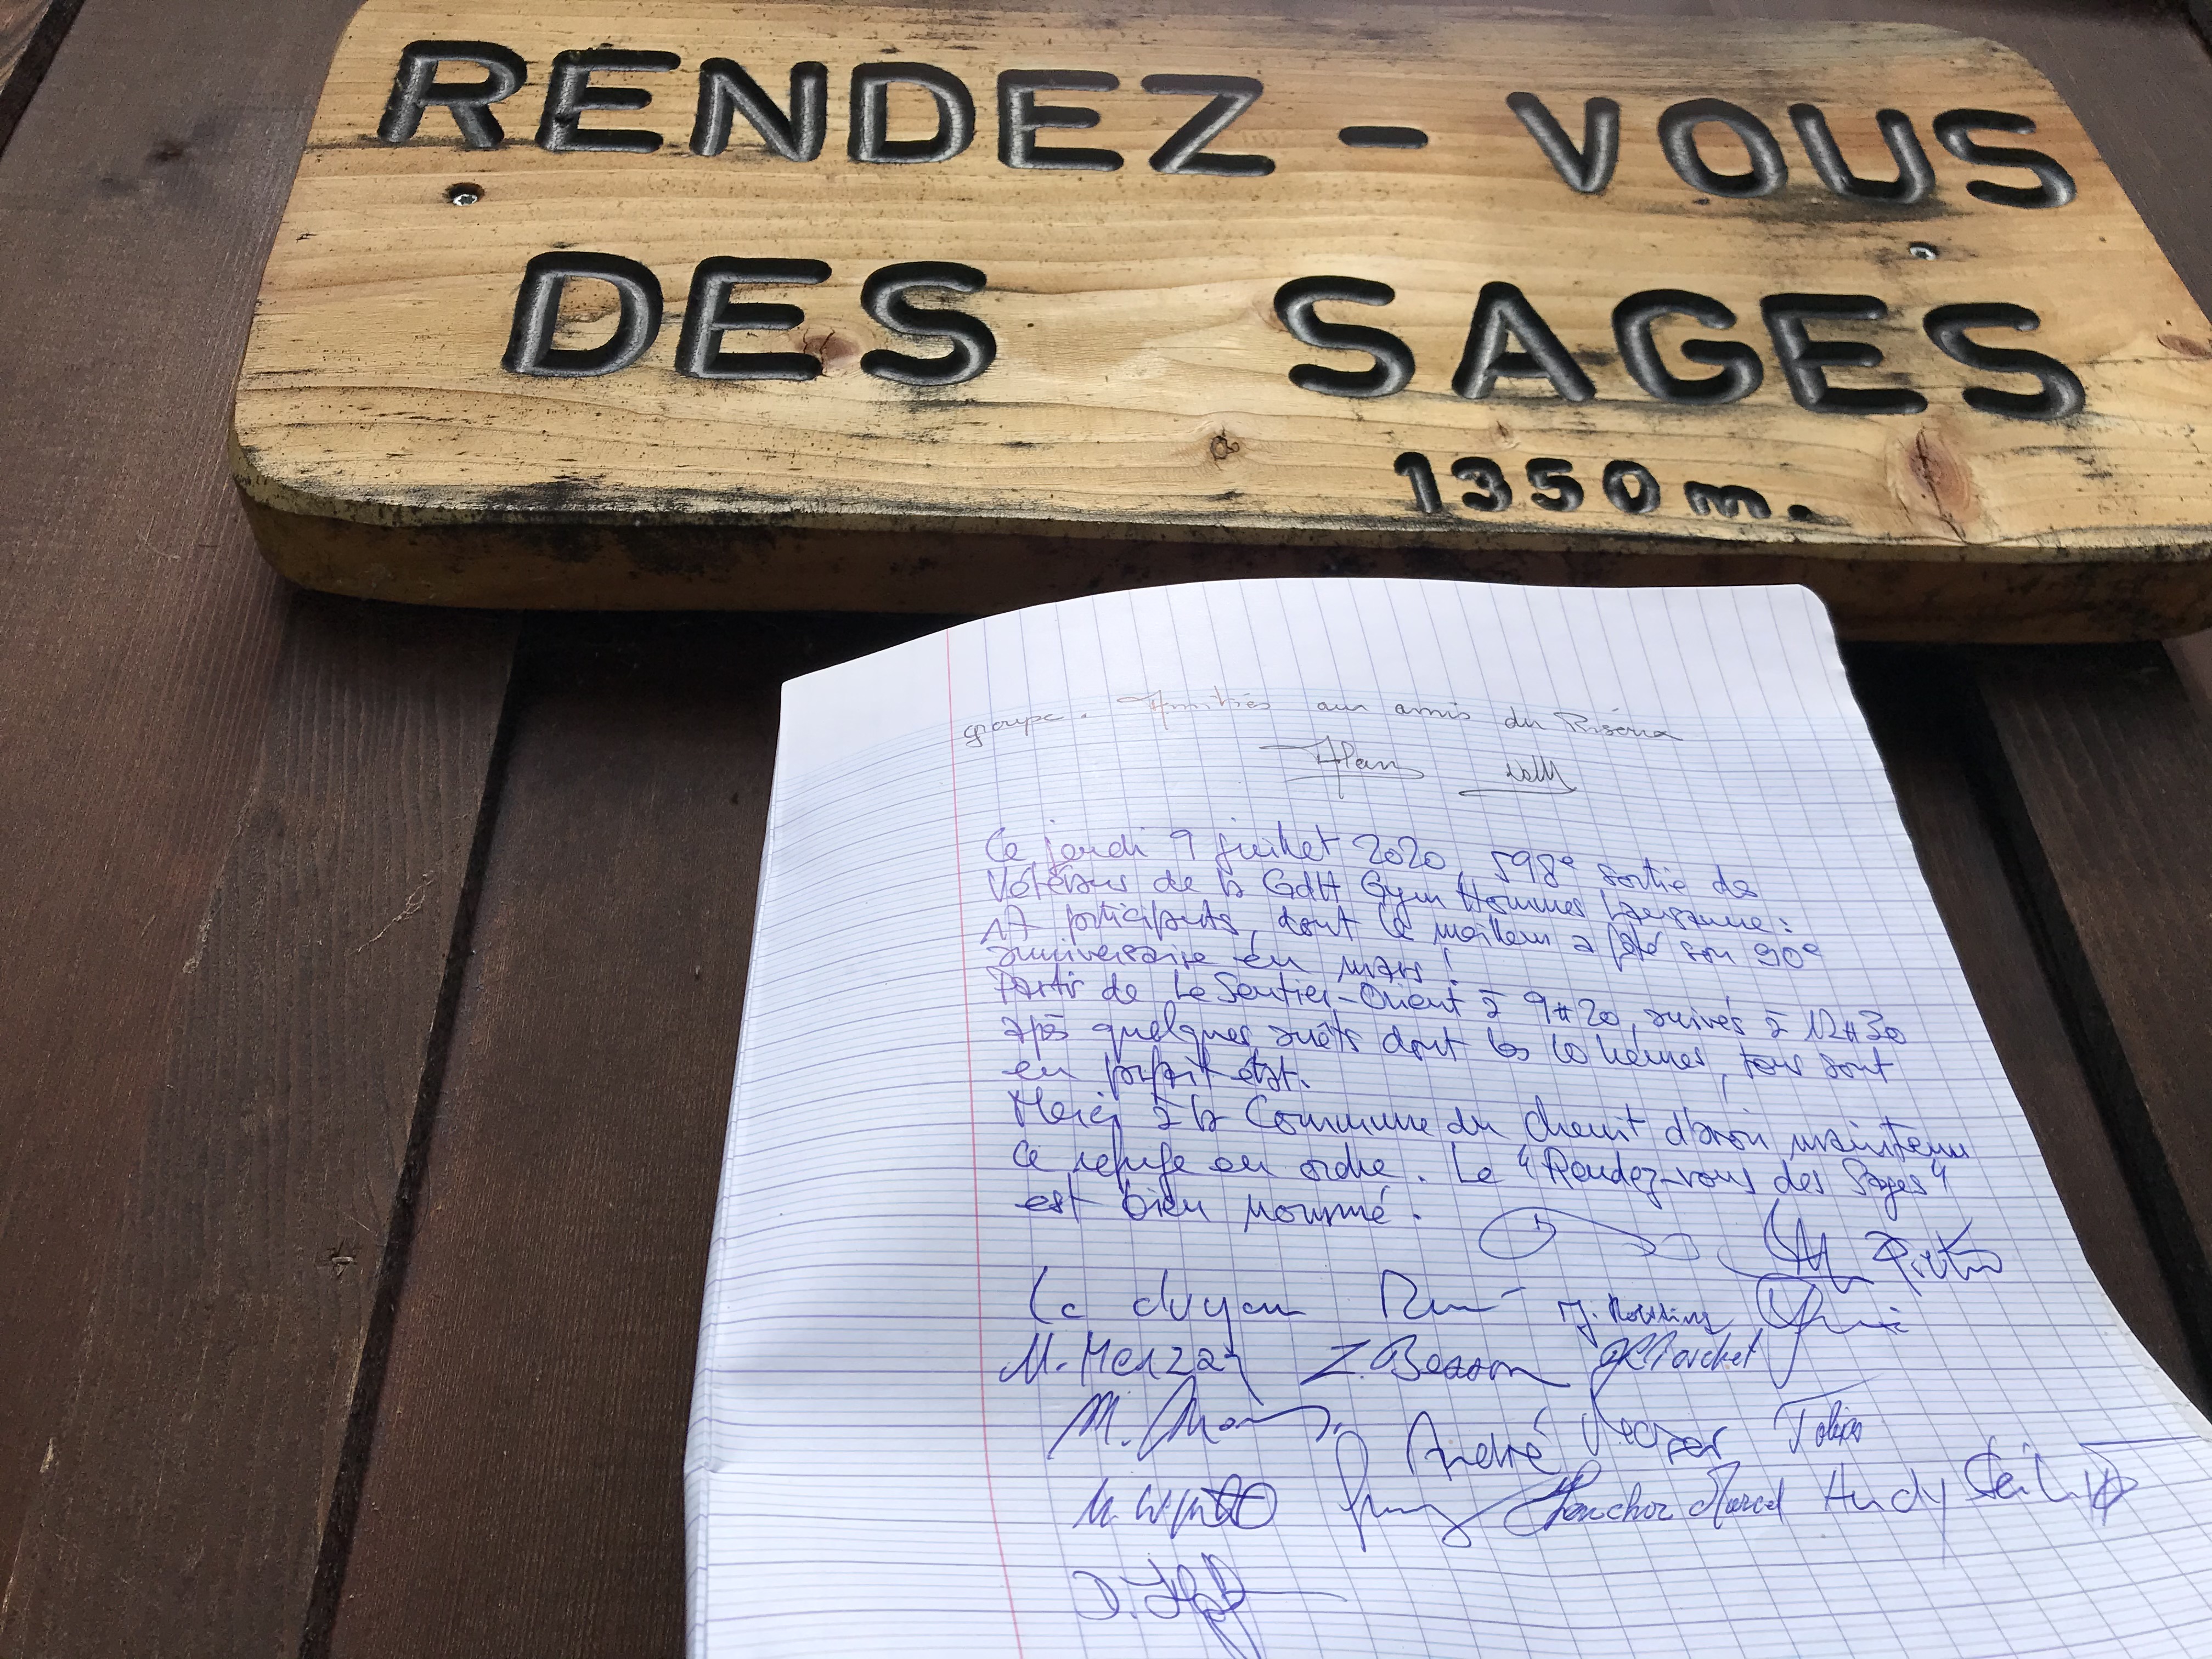 RENDEZ-VOUS
DES SAGES
1350 m.
groupe. Amitiés aux amis du Risoux
Ce jeudi 9 juillet 2020, 598e sortie des
Vétérans de la GdH Gym Hommes Lausanne:
17 participants, dont le meilleur a fêté son 90e
anniversaire en mars!
Partis de Le Sentier-Orient à 9H20, arrivés à 12H30
après quelques arrêts dont les 10 heures, tous sont
en parfait état.
Merci à la Commune du Chenit d'avoir maintenu
ce refuge en ordre. Le "Rendez-vous des Sages"
est bien nommé.
Le doyen
M. Z. Besson
André
Marcel
D.